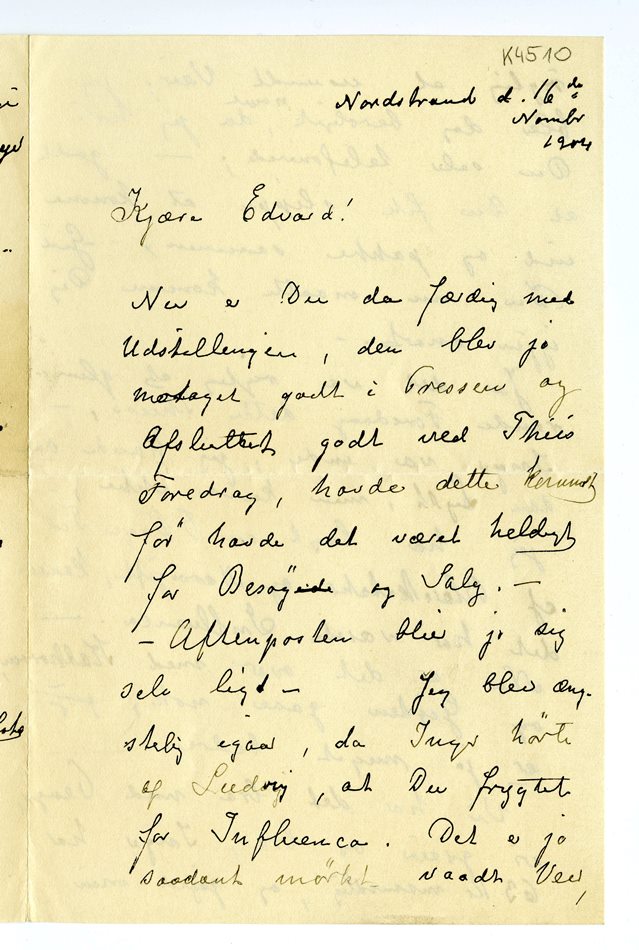 K4510
Nordstrand d. 16 de
Novmbr
1904
Kjære Edvard!
Nu er Du da færdig med
Udstillingen, den blev jo
motaget godt i Pressen og
Afsluttet godt ved Thiis
Foredrag, havde dette kommet
før havde det været heldigt
for Besøg og Salg. —
— Aftenposten blir jo sig
selv ligt — Jeg blev æng-
stelig igaar, da Inger hørte
af Ludvig, at Du frygtet
for Influenca. Det er jo
saadant mørkt vaadt Veir,